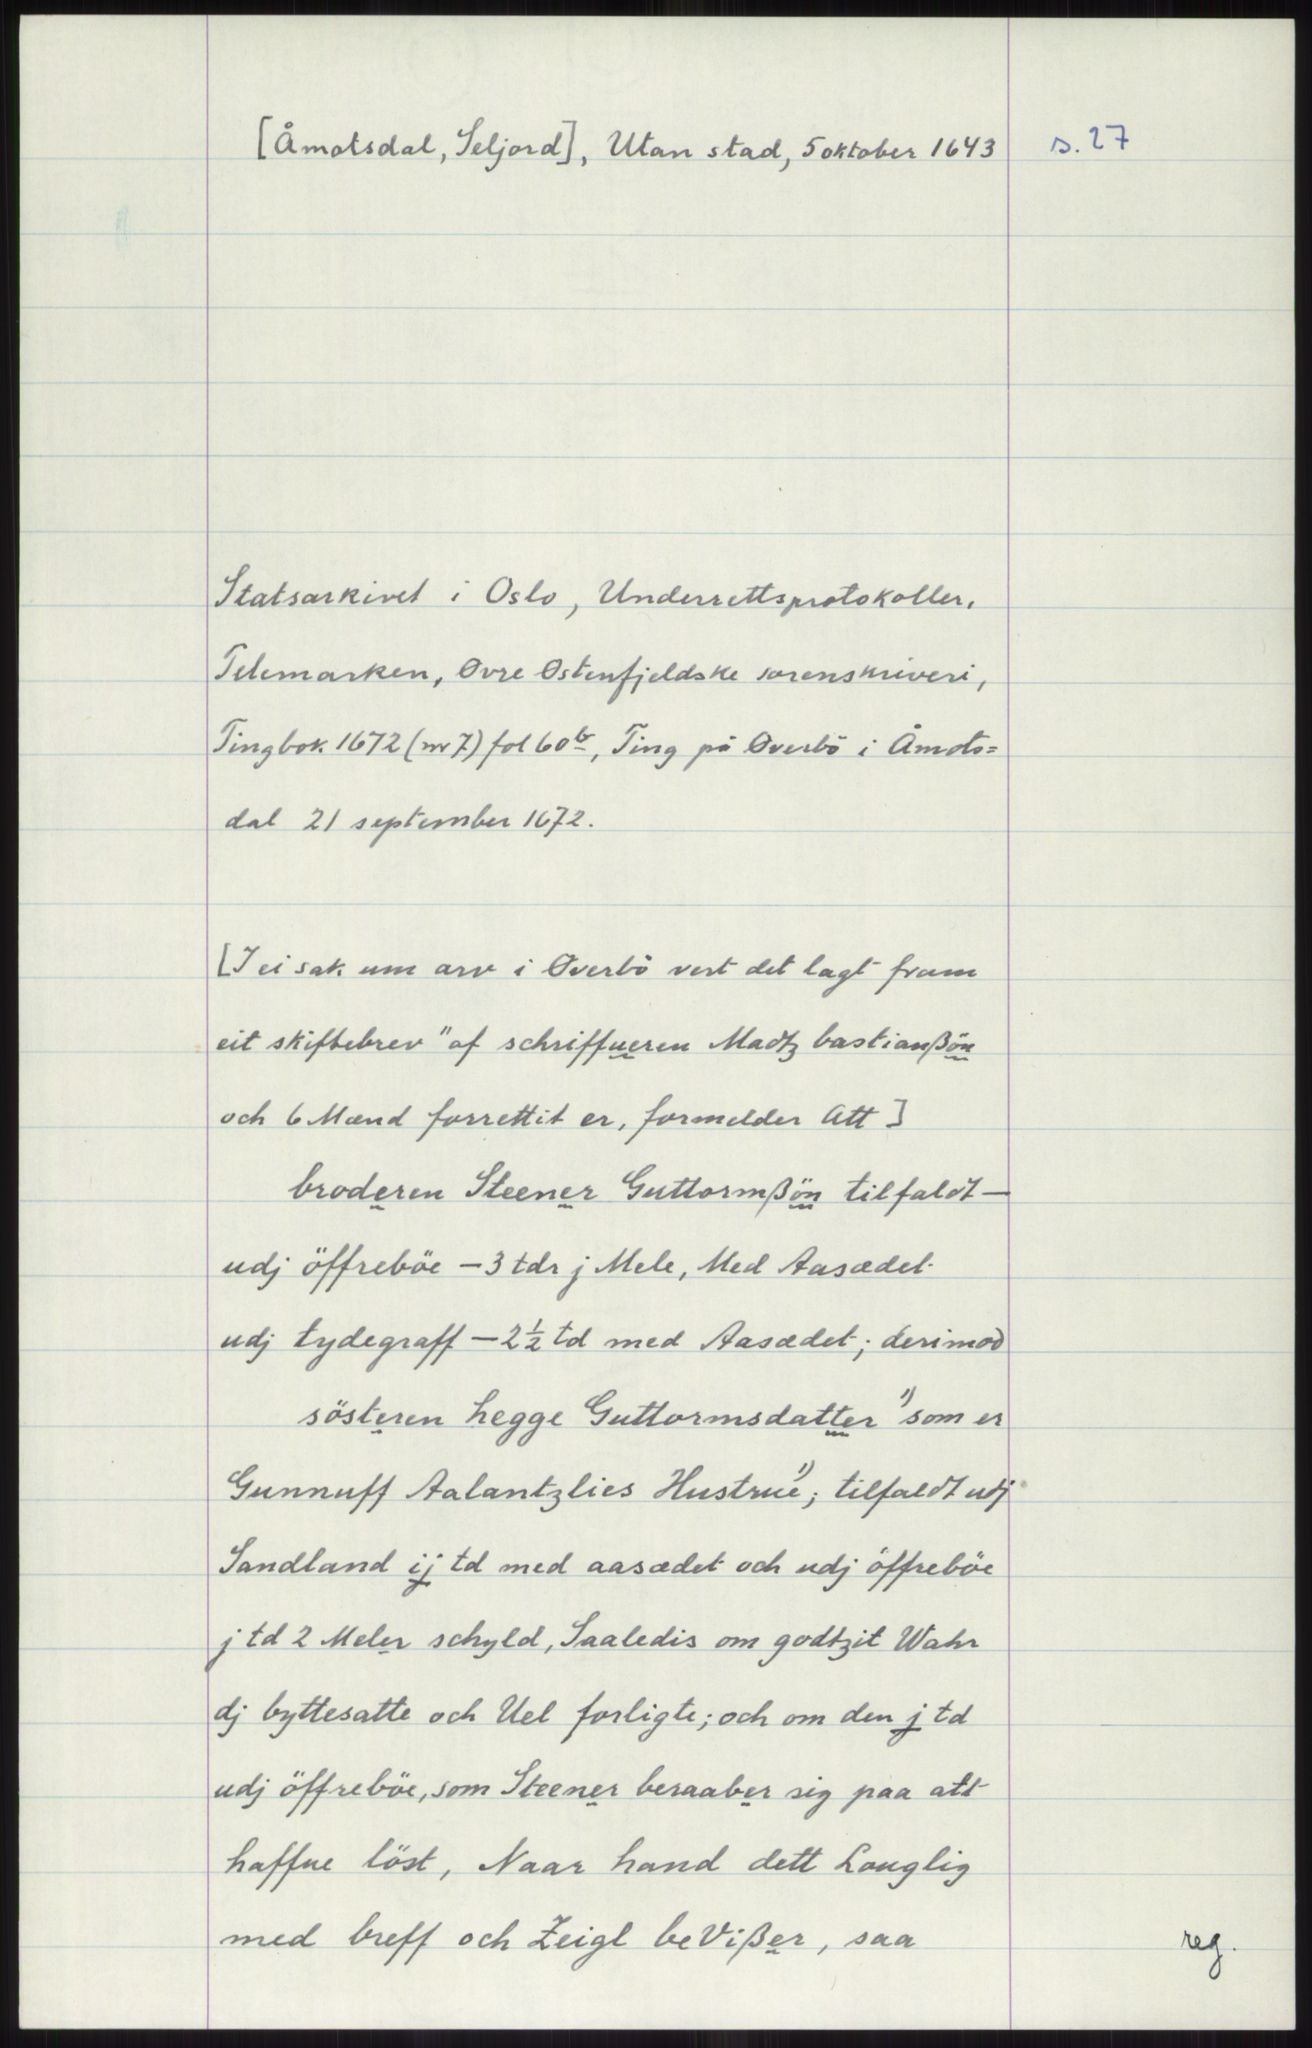 [Åmotsdal, Seljord], Utan stad, 5 oktober 1643
s. 27
Statsarkivet i Oslo, Underrettsprotokoller,
Telemarken, Øvre Østenfjeldske sorenskriveri,
Tingbok 1672 (nr 7) fol 60b, Ting på Øverbö i Åmots=
dal 21 september 1672.
[I ei sak um arv i Øverbö vert det lagt fram
eit skiftebrev "af schriffueren Madtz bastianßön
och 6 Mænd forrettit er, formelder Att]
broderen Steener Guttormßön tilfaldt—
udj öffreböe – 3 tdr j Mele, Med Aasædet
udj tydegraff – 2½ td med Aasædet; derimod
sösteren hegge Guttormsdatter 1) som er
Gunnuff Aalantzlies Hustrue 1); tilfaldt udj
Sandland ij td med aasædet och udj öffreböe
j td 2 Meler schyld, Saaledis om godtzit Wahr
dj byttesatte och Uel forligte; och om den j td
udj öffreböe, som Steener beraaber sig paa att
haffue löst, Naar hand dett Louglig
med breff och Zeigl beVißer, saa
reg.